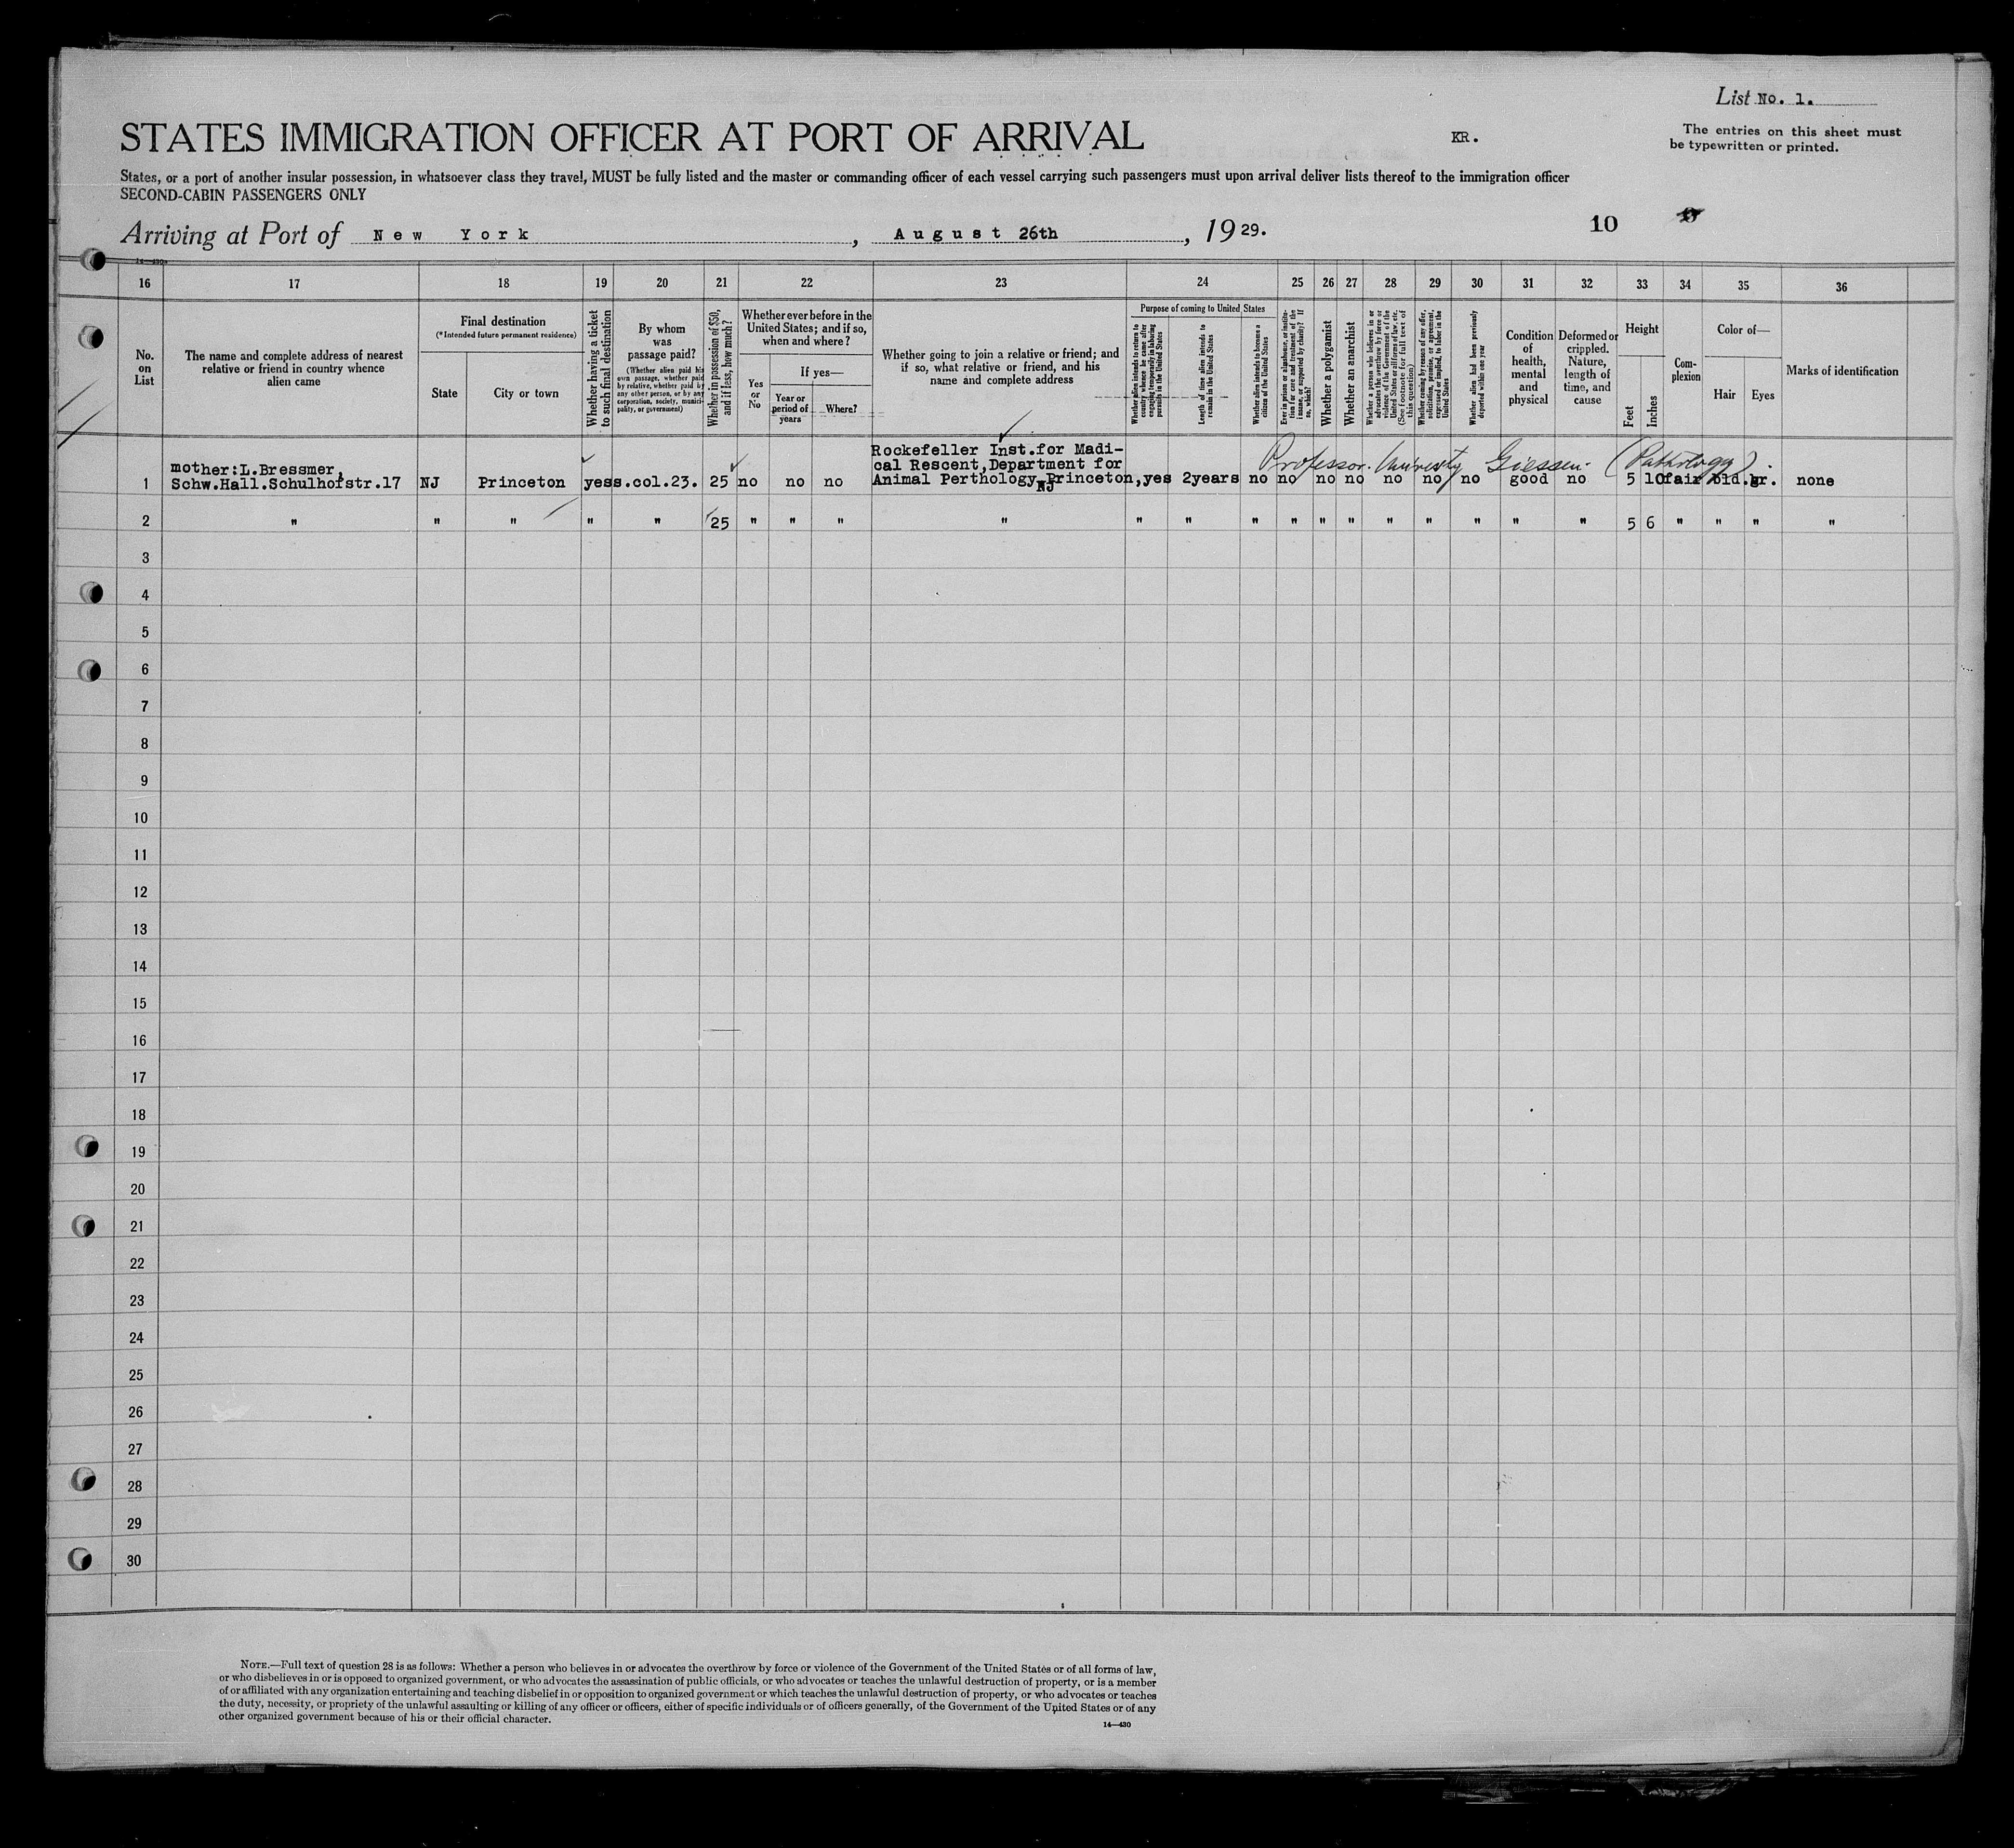 List No. 1.
STATES IMMIGRATION OFFICER AT PORT OF ARRIVAL
KR.
The entries on this sheet must
be typewritten or printed.
States, or a port of another insular possession, in whatsoever class they travel, MUST be fully listed and the master or commanding officer of each vessel carrying such passengers must upon arrival deliver lists thereof to the immigration officer
SECOND-CABIN PASSENGERS ONLY
Arriving at Port of New York, August 26th, 1929.
10
14—430
16 17 18 19 20 21 22 23 24 25 26 27 28 29 30 31 32 33 34 35 36
No.
on
List
The name and complete address of nearest
relative or friend in country whence
alien came
Final destination
(*Intended future permanent residence)
State
City or town
Whether having a ticket
to such final destination
By whom
was
passage paid?
(Whether alien paid his
own passage, whether paid
by relative, whether paid by
any other person, or by any
corporation, society, munici-
pality, or government)
Whether in possession of $50,
and if less, how much?
Whether ever before in the
United States; and if so,
when and where?
Yes
or
No
If yes—
Year or
period of
years
Where?
Whether going to join a relative or friend; and
if so, what relative or friend, and his
name and complete address
Purpose of coming to United States
Whether alien intends to return to
country whence he came after
engaging temporarily in laboring
pursuits in the United States
Length of time alien intends to
remain in the United States
Whether alien intends to become a
citizen of the United States
Ever in prison or almshouse, or institu-
tion for care and treatment of the
insane, or supported by charity? If
so, which?
Whether a polygamist
Whether an anarchist
Whether a person who believes in or
advocates the overthrow by force or
violence of the Government of the
United States or all forms of law, etc.
(See footnote for full text of
this question)
Whether coming by reason of any offer,
solicitation, promise, or agreement,
expressed or implied, to labor in the
United States
Whether alien had been previously
deported within one year
Condition
of
health,
mental
and
physical
Deformed or
crippled.
Nature,
length of
time, and
cause
Height
Feet
Inches
Com-
plexion
Color of—
Hair
Eyes
Marks of identification
Rockefeller Inst.for Madi-
cal Rescent,Department for
Animal Perthology Princeton,
NJ
Professor. University Giessen. (Pathology).
mother:L.Bressmer,
1 Schw.Hall.Schulhofstr.17 NJ Princeton yes s.col.23. 25 no no no yes 2years no no no no no no no good no 5 10 fair bld. gr. none
2 " " " " " 25 " " " " " " " " " " " " " " " 5 6 " " " "
3
4
5
6
7
8
9
10
11
12
13
14
15
16
17
18
19
20
21
22
23
24
25
26
27
28
29
30
NOTE.—Full text of question 28 is as follows: Whether a person who believes in or advocates the overthrow by force or violence of the Government of the United States or of all forms of law,
or who disbelieves in or is opposed to organized government, or who advocates the assassination of public officials, or who advocates or teaches the unlawful destruction of property, or is a member
of or affiliated with any organization entertaining and teaching disbelief in or opposition to organized government or which teaches the unlawful destruction of property, or who advocates or teaches
the duty, necessity, or propriety of the unlawful assaulting or killing of any officer or officers, either of specific individuals or of officers generally, of the Government of the United States or of any
other organized government because of his or their official character.
14—430